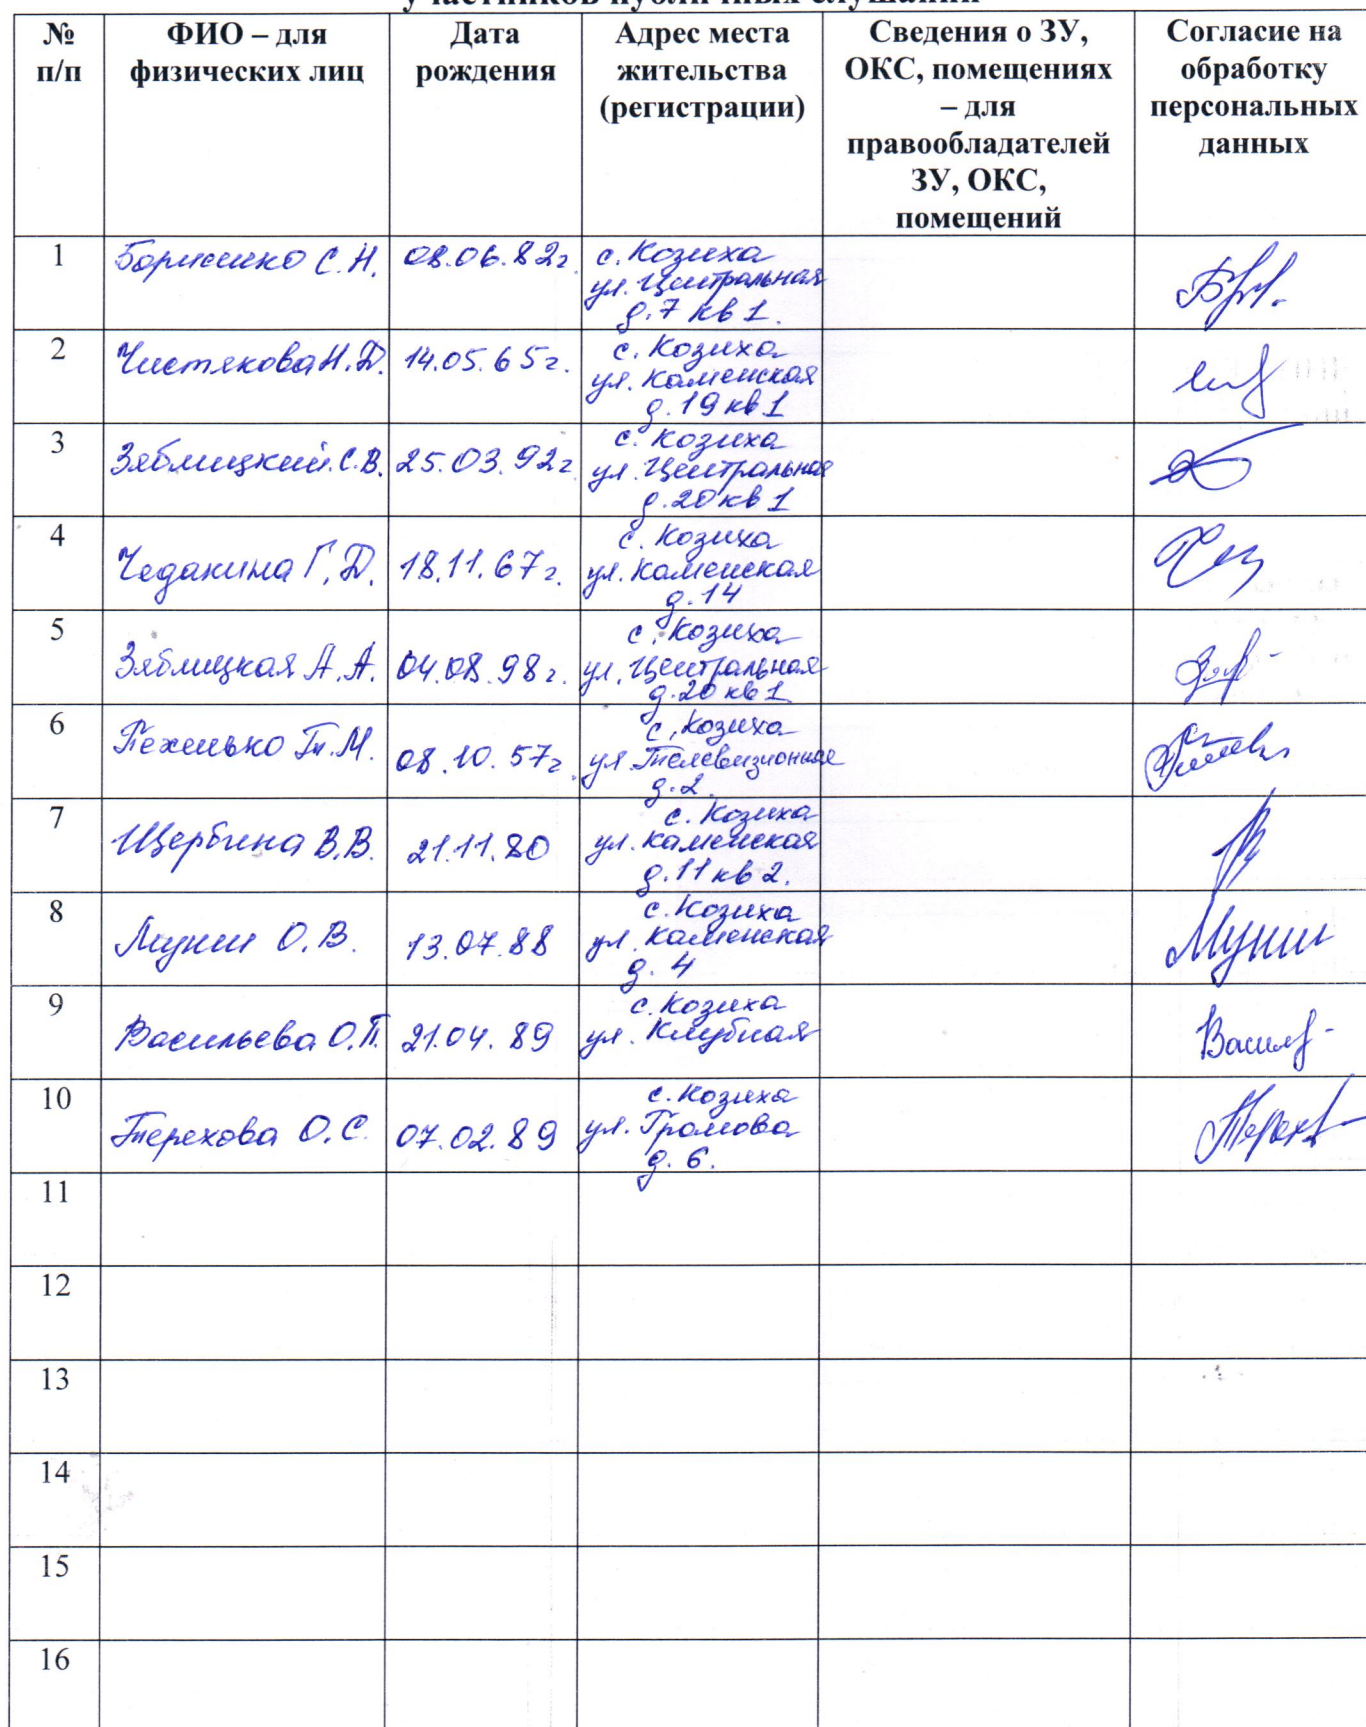 участников публичных слушаний
№ п/п
ФИО – для физических лиц
Дата рождения
Адрес места жительства (регистрации)
Сведения о ЗУ, ОКС, помещениях – для правообладателей ЗУ, ОКС, помещений
Согласие на обработку персональных данных
1 Борисенко С.Н. 08.06.82г. с. Козиха
ул. Центральная
д.7 кв 1.
2 Чистякова Н.Д. 14.05.65г. с. Козиха
ул. Каменская
д.19 кв 1
3 Зяблицкий С.В. 25.03.92г с. Козиха
ул. Центральная
д.20 кв 1
4 Чедакина Г.Д. 18.11.67г. с. Козиха
ул. Каменская
д.14
5 Зяблицкая А.А. 04.08.98г. с. Козиха
ул. Центральная
д.20 кв 1
6 Т.М. 08.10.57г. с. Козиха
ул Телевизионная
д.2.
7 Щербина В.В. 21.11.80 с. Козиха
ул. Каменская
д.11 кв 2.
8 О.В. 13.07.88 с. Козиха
ул. Каменская
д. 4
9 Васильева О.П. 21.04.89 с. Козиха
ул. Клубная
10 Терехова О.С. 07.02.89 с. Козиха
ул. Громова
д. 6.
11
12
13
14
15
16